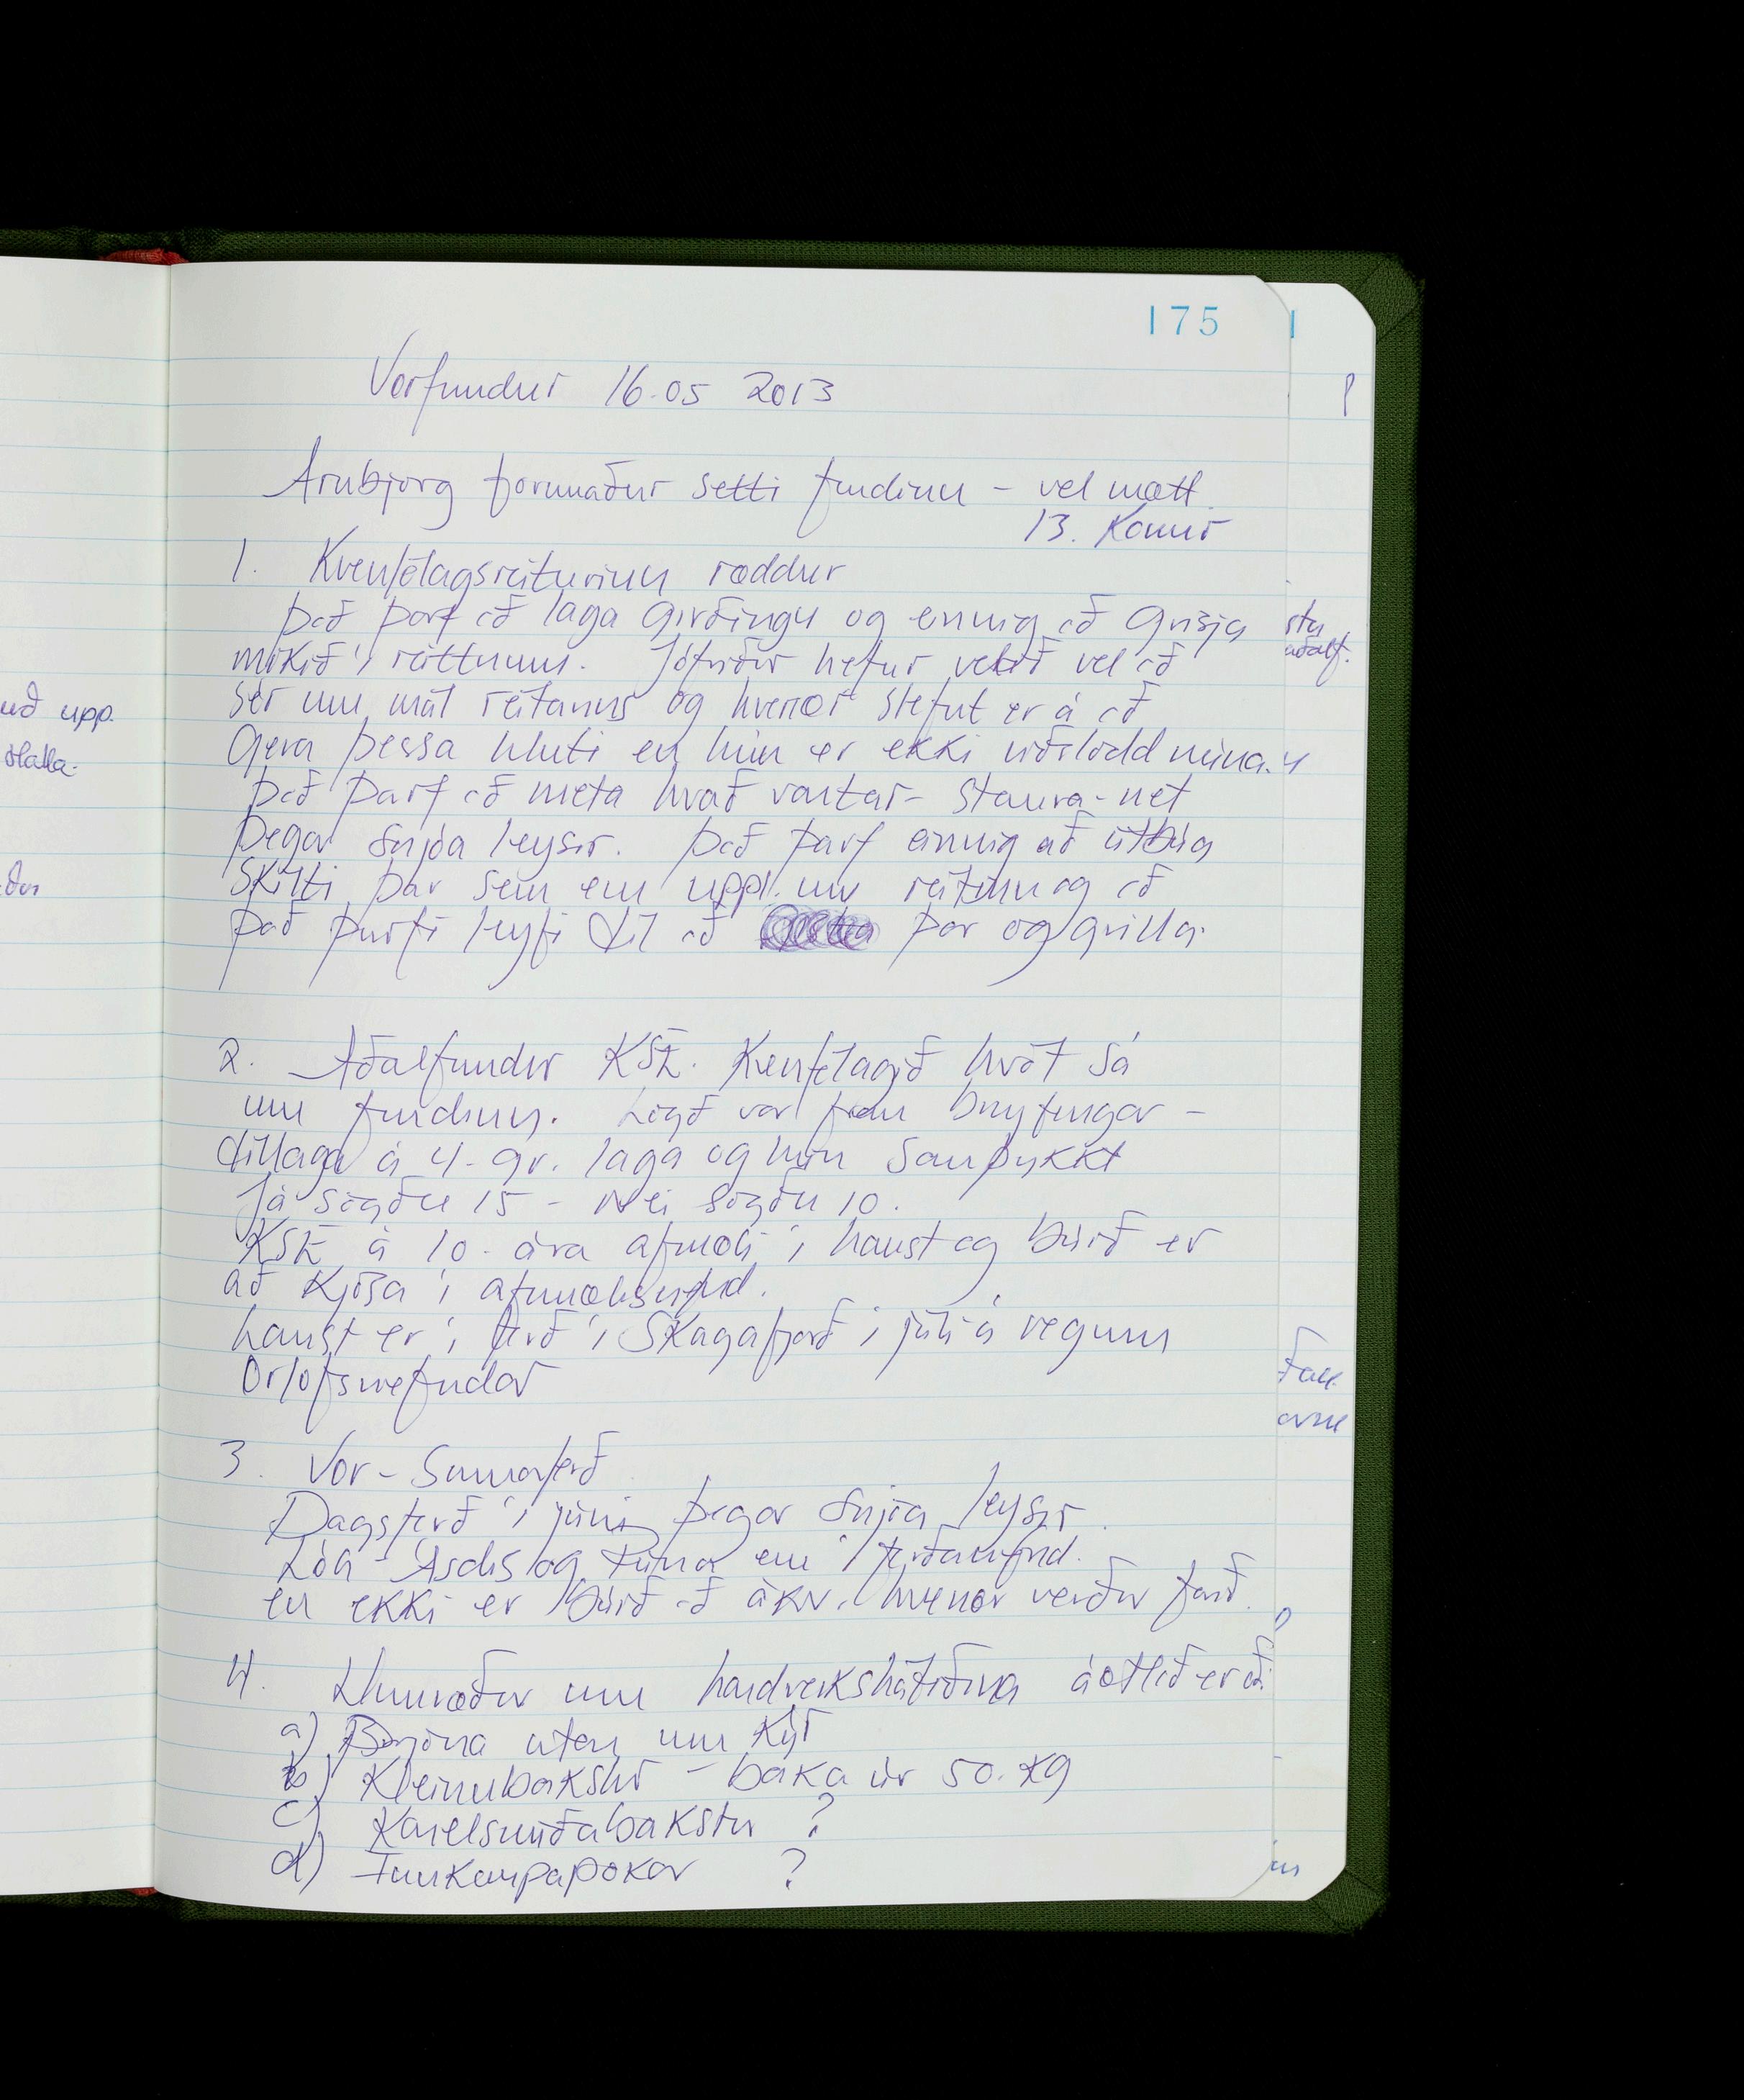 175
Vorfundur 16.05 2013
Arnbjörg formaður setti fundinn - vel mætt.
13. Konur
1. Kvenfélagsreiturinn ræddur
það þarf að laga girðingu og einnig að grisja
mikið í reittnum. Jófríður hefur verið vel að
sér um mál reitanns og hvenær stefnt er á að
gera þessa hluti en hún er ekki viðstödd núna.
það þarf að meta hvað vantar - staura - net
þegar snjóa leysir. það þarf einnig að útbúa
skilti þar sem eru uppl. um reitinn og að
það þurfi leyfi til að þar og grilla.
2. Aðalfundur KSE. Kvenfélagið hvöt sá
um fundinn. Lögð var fram breytingar -
tillaga á 4. gr. laga og hún samþykkt
Já sögðu 15 - Nei sögðu 10.
KSE á 10. ára afmæli í haust og búið er
að kjósa í afmælisnefnd.
haust er í ferð í Skagafjörð í júlí á vegum
Orlofsnefndar
3. Vor - Sumarferð
Dagsferð í júní þegar snjóa leysir.
Lóa - Ásdís og eru í ferðanefnd.
en ekki er búið að ákv. hvenær verður farið.
4. Umræður um handverkshátíðina áætlið er að
a) Brjóna utan um Kýr
b) Kleinubakstur - baka úr 50. kg
c) Kanelsnúðabakstur ?
d) Innkaupapokar ?
uð upp.
aðalf.